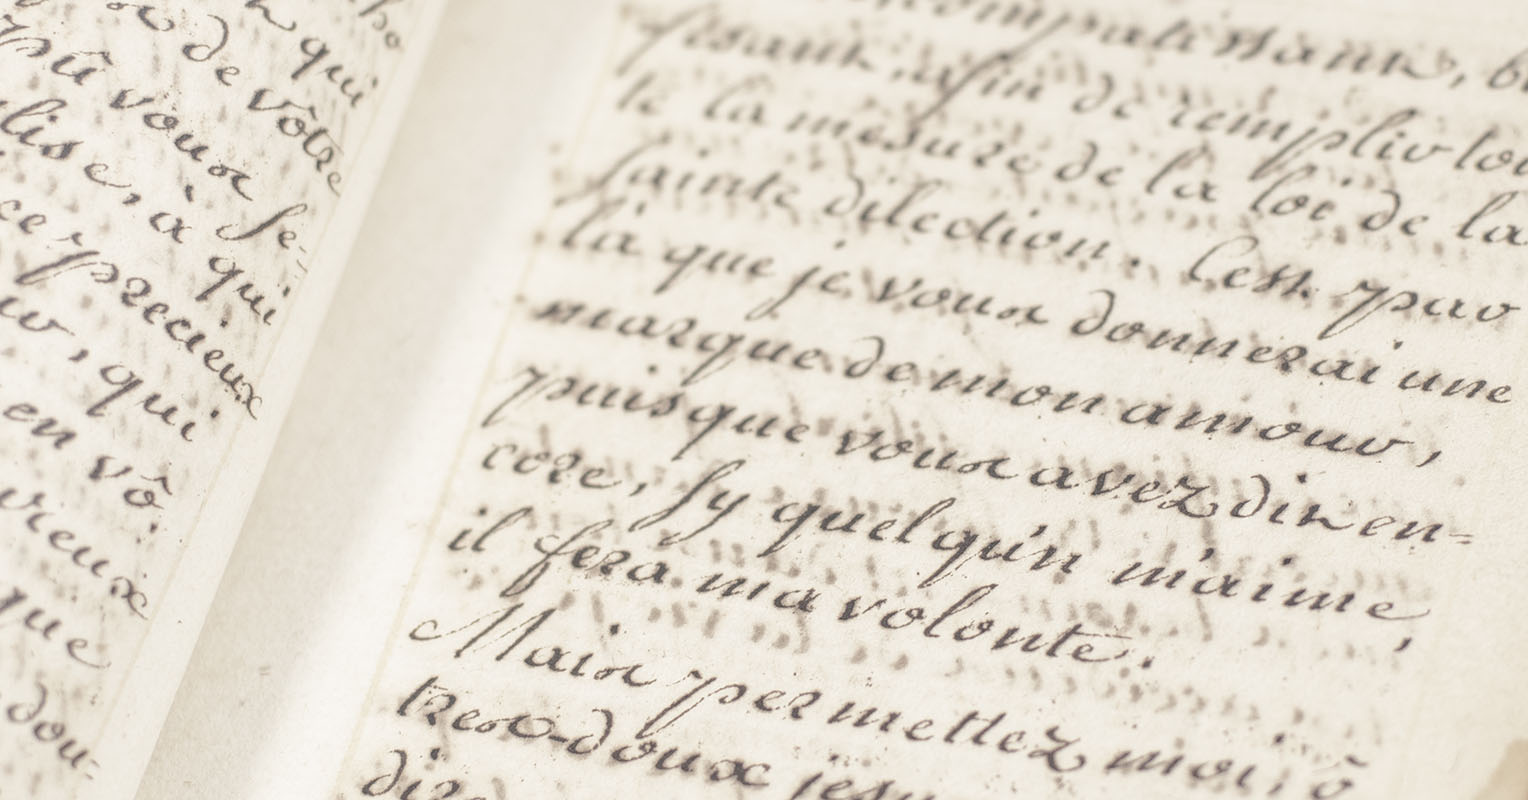 qui
de vôtre
pû vous
lise, à qui
ce precieux
qui
en vô-
que
dou-
compatissant,
fisant, afin de remplir tou
te la mesure de la loi de la
sainte dilection. C'est par
là que je vous donnerai une
marque de mon amour,
puisque vous avez dit en-
core, sy quelqu'n m'aime,
il fera ma volonté.
Mais permettez moi, ô
tres-doux jesu